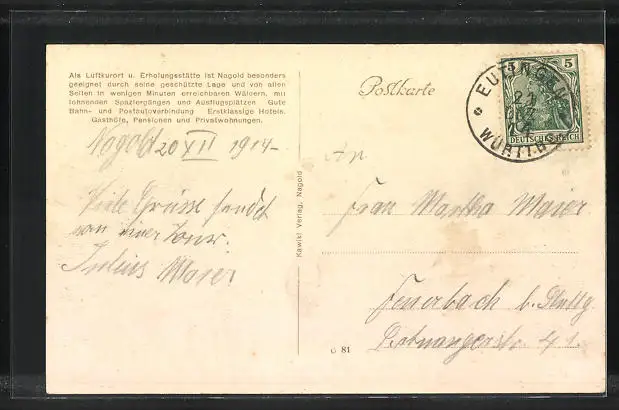 Als Luftkurort u. Erholungsstätte ist Nagold besonders
geeignet durch seine geschützte Lage und von allen
Seiten in wenigen Minuten erreichbaren Wäldern, mit
lohnenden Spaziergängen und Ausflugsplätzen Gute
Bahn- und Postautoverbindung Erstklassige Hotels.
Gasthöfe, Pensionen und Privatwohnungen.
Nagold 20 XII 1914-
Viele Grüsse sendet
von einer Tour.
Julius Maier
Kawikl Verlag, Nagold
Postkarte
EUTINGEN
WÜRTT.
5 5
DEUTSCHES REICH
An
Frau Martha Maier
Feuerbach b. Stuttg.
41.
G 81